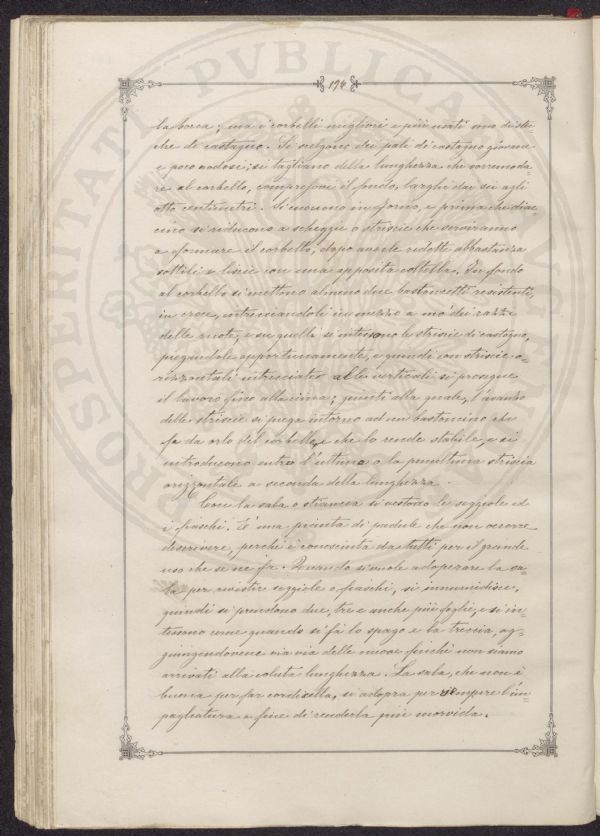 194
la borea; ma i corbelli migliori e più usati sono di stri-
che di castagno. Si scelgono dei pali di castagno giovane
e poco nodosi; si tagliano della lunghezza che corrisponda-
re al corbello, compresovi il fondo, larghe dai sei agli
otto centimetri. Si cuociono in forno, e prima che diac-
cino si riducono a scheggie o striscie che serviranno
a formare il corbello, dopo averle ridotte abbastanza
sottili e liscie con una apposita coltella. In fondo
al corbello si mettono almeno due bastoncelli resistenti,
in croce, intrecciandole in mezzo a mo' dei razzi
delle ruote, e su quelli si intessono le striscie di castagno,
piegandole opportunamente, e quindi con striscie o-
rizzontali intrecciate alle verticali si prosegue
il lavoro fino alla cima; giunti alla quale, l'avanzo
delle striscie si piega intorno ad un bastoncino che
fa da orlo del corbello, e che lo rende stabile, e si
introducono entro l'ultima o la penultima striscia
orizzontale a seconda della lunghezza.
Con la sala o stiancia si vestono le seggiole ed
i fiaschi. È una pianta di padule che non occorre
descrivere, perchè è conosciuta da tutti per il grande
uso che se ne fa. Quando si vuole adoperare la sa-
la per rivestire seggiole o fiaschi, si inumidisce,
quindi si prendono due, tre e anche più foglie, e si in-
tessono come quando si fa lo spago e la treccia, ag-
giungendovene via via delle nuove finchè non siamo
arrivati alla voluta lunghezza. La sala, che non è
buona per far cordicella, si adopra per riempire l'im-
pagliatura a fine di renderla più morvida.
PROSPERITATI PVBLICAE AVGENDAE